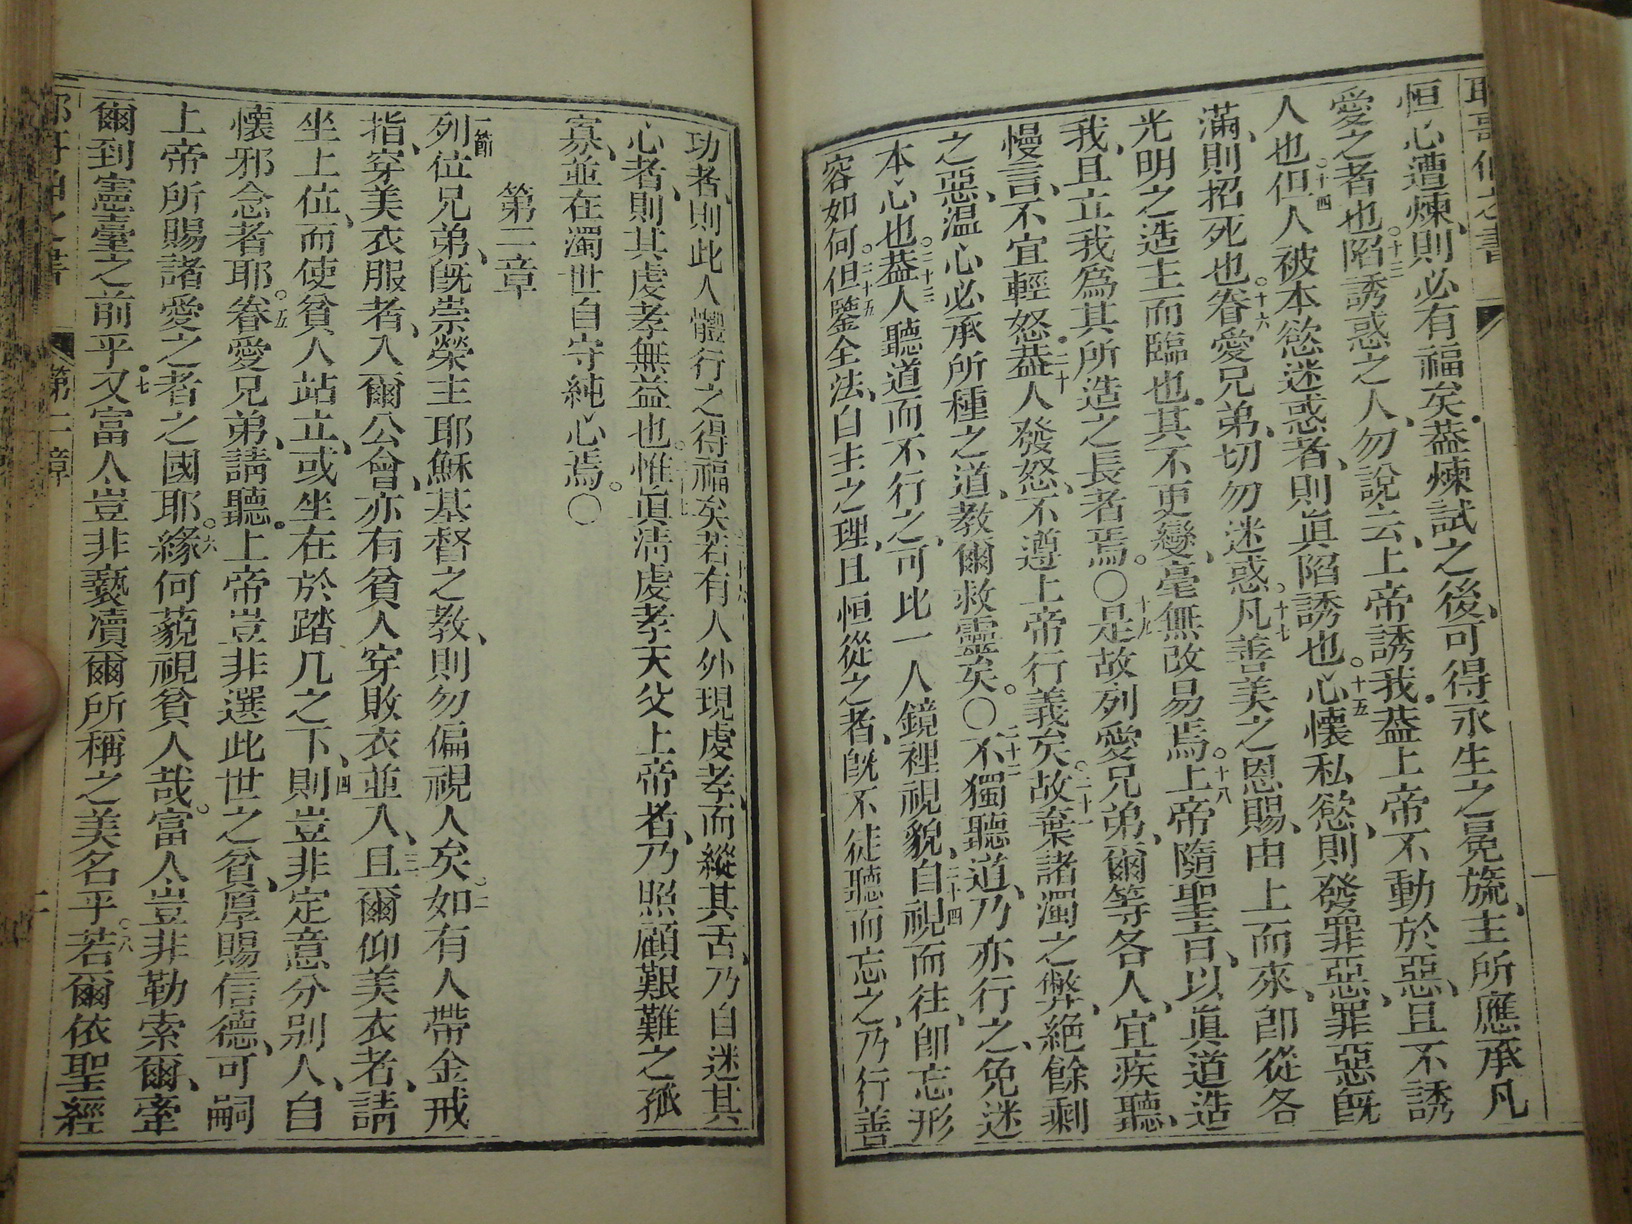 耶哥伯之書
恒心遭煉、則必有福矣。蓋煉試之後、可得永生之冕旒、主所應承凡
愛之者也。十三陷誘惑之人、勿說云、上帝誘我。蓋上帝不動於惡、且不誘
人也。十四但人被本慾迷惑者、則眞陷誘也。十五心懷私慾、則發罪惡、罪惡旣
滿、則招死也。十六眷愛兄弟、切勿迷惑。十七凡善美之恩賜、由上而來、卽從各
光明之造主而臨也。其不更變、毫無改易焉。十八上帝隨聖旨、以眞道造
我、且立我爲其所造之長者焉。〇十九是故列愛兄弟、爾等各人、宜疾聽、
慢言、不宜輕怒。二十蓋人發怒、不遵上帝行義矣。二十一故棄諸濁之弊、絕餘剩
之惡、温心必承所種之道、教爾救靈矣。〇二十二不獨聽道、乃亦行之、免迷
本心也。二十三蓋人聽道而不行之、可比一人鏡裡視貌、二十四自視而往、卽忘形
容如何。二十五但鑒全法、自主之理、且恒從之者、旣不徒聽而忘之、乃行善
功者、則此人體行之得福矣。若有人外現虔孝、而縱其舌、乃自迷其
心者、則其虔孝無益也。二十七惟眞淸虔孝天父上帝者、乃照顧艱難之孤
寡、並在濁世自守純心焉。〇
第二章
一節列位兄弟、旣崇榮主耶穌基督之教、則勿偏視人矣。二如有人帶金戒
指、穿美衣服者、入爾公會、亦有貧人穿敗衣並入、三且爾仰美衣者、請
坐上位、而使貧人站立、或坐在於踏几之下、四則豈非定意分别人、自
懷邪念者耶。五眷愛兄弟、請聽。上帝豈非選此世之貧、厚賜信德、可嗣
上帝所賜諸愛之者之國耶。六緣何藐視貧人哉。富人豈非勒索爾、牽
爾到憲臺之前乎。七又富人豈非褻瀆爾所稱之美名乎。八若爾依聖經